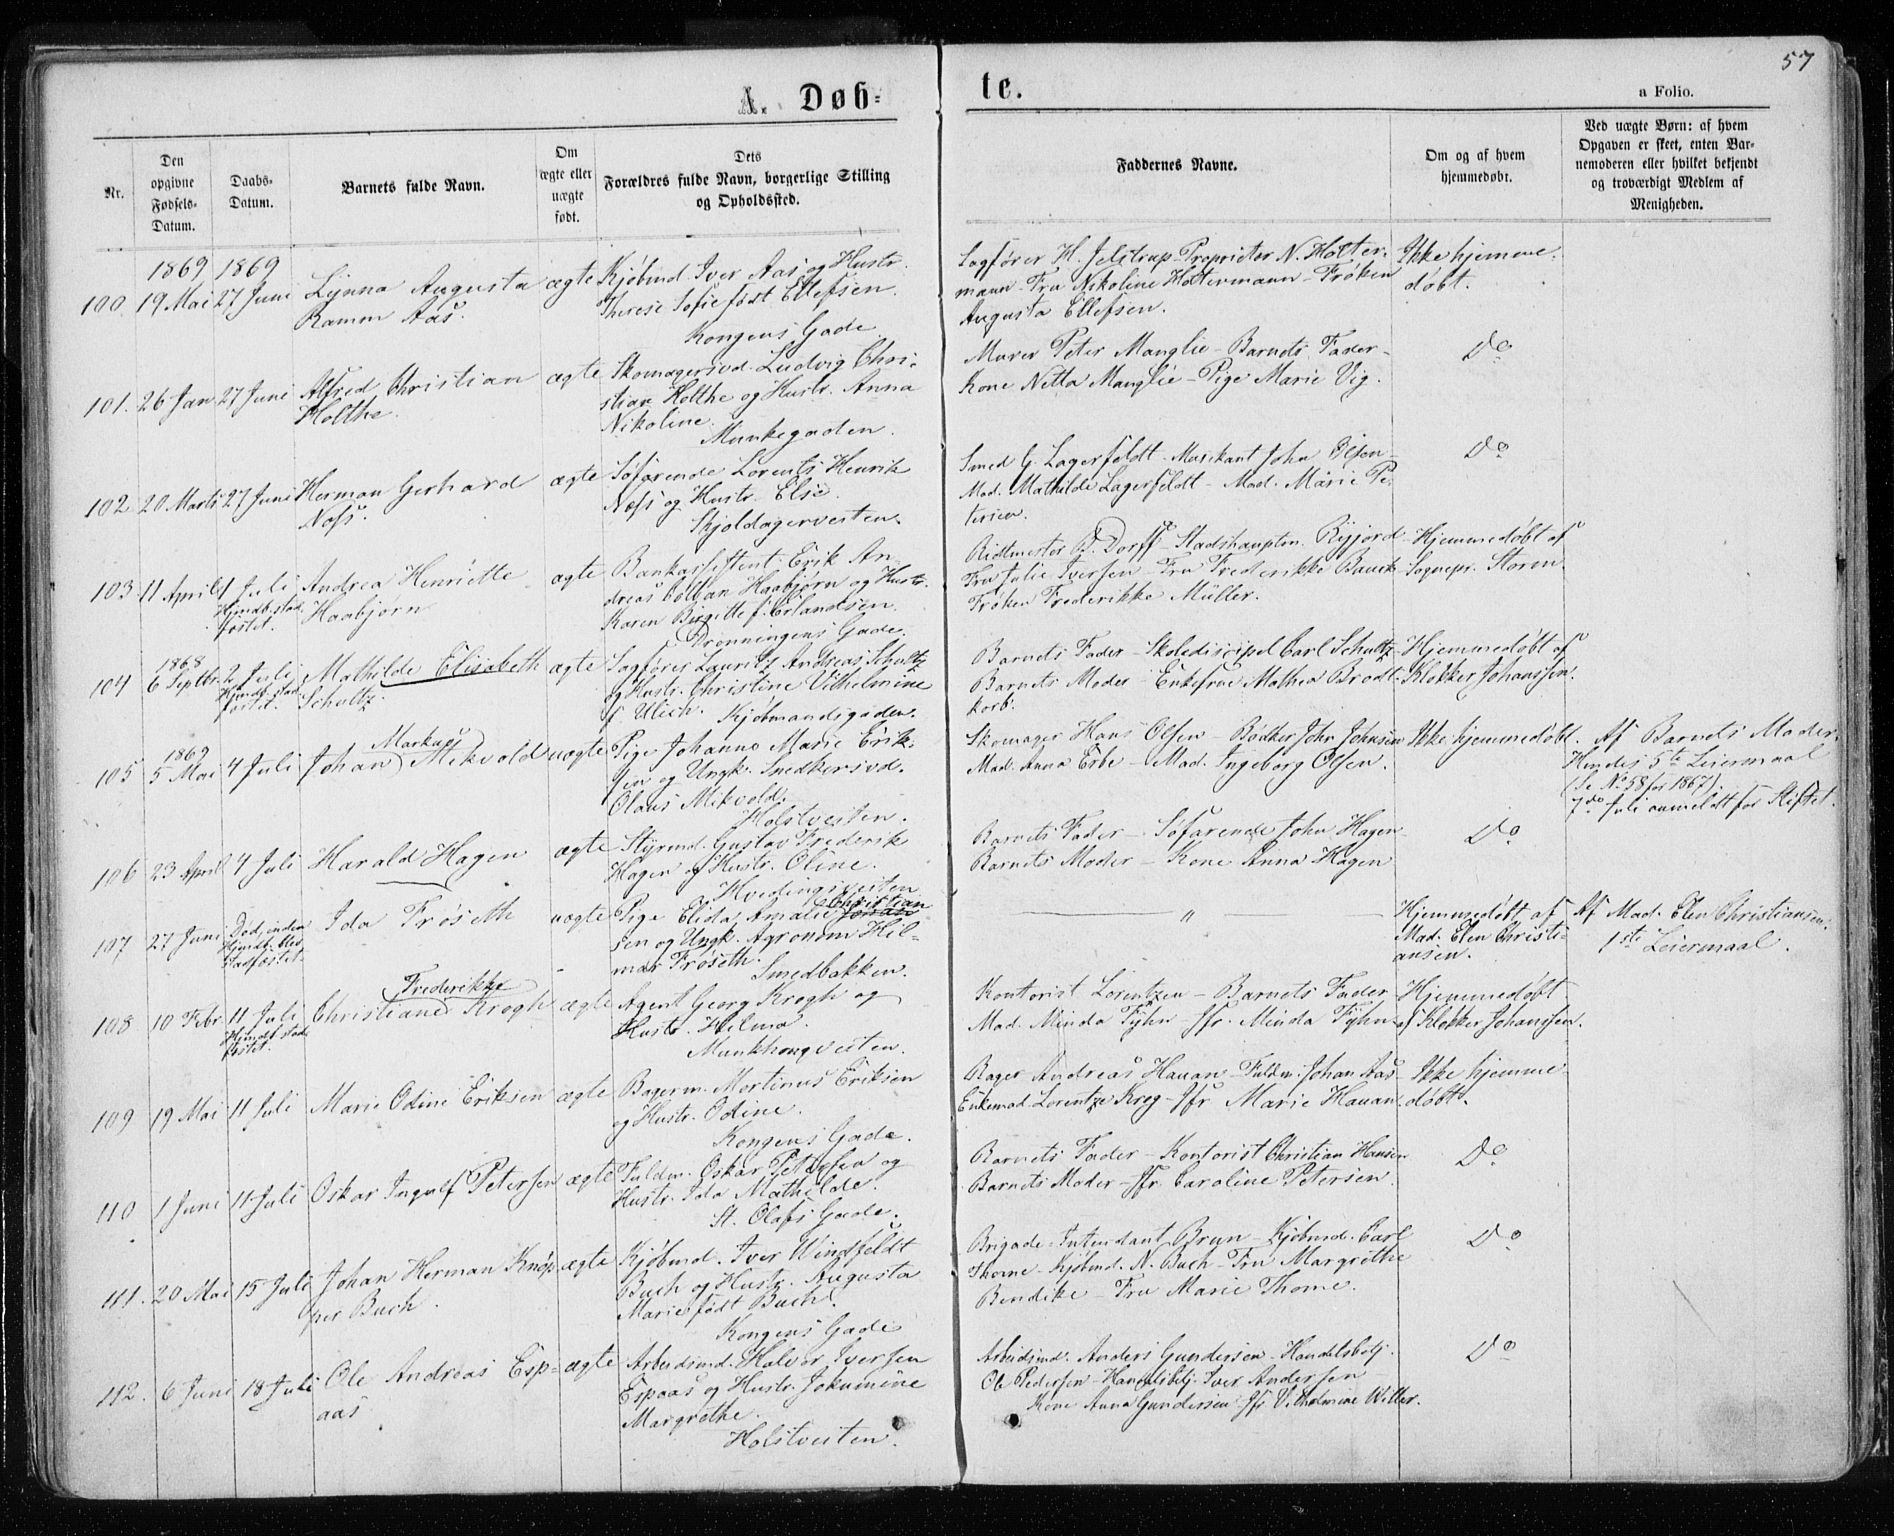 57
A. Døb=
te.
a Folio.
Nr.
Den
opgivne
Fødsels-
Datum.
Daabs-
Datum.
Barnets fulde Navn.
Om
ægte eller
uægte
født.
Dets
Forældres fulde Navn, borgerlige Stilling
og Opholdssted.
Faddernes Navne.
Om og af hvem
hjemmedøbt.
Ved uægte Børn: af hvem
Opgaven er skeet, enten Bar-
nemoderen eller hvilket bekjendt
og troværdigt Medlem af
Menigheden.
1869 1869
100. 19 Mai 27 Juni
Lynna Augusta
Ramm Aas.
ægte
Kjøbmd Iver Aas og Hustr.
Therese Sofie født Ellefsen.
Kongens Gade
Sagfører H. Jelstrup - Proprietær N. Holter-
mann - Fru Nikoline Holtermann - Frøken
Augusta Ellefsen.
Ikke hjemme-
døbt.
101. 26 Jan 27 Juni
Alfred Christian
Holthe.
ægte
Skomagersvd. Ludvig Chri-
stian Holthe og Hustr. Anna
Nikoline.
Munkegaden.
Murer Peter Manglie - Barnets Fader -
Kone Netta Manglie - Pige Marie Vig.
Do
102 20 Marts 27 Juni
Herman Gerhard
Næss.
ægte
Søfarende Lorents Henrik
Næss og Hustr. Else.
Skjoldagerveiten.
Smed G. Lagerfeldt - Musikant John Olsen -
Mad. Mathilde Lagerfeldt - Mad. Marie Pe-
tersen.
Do
103 11 April 1 Juli
Hjmdb. stad-
fæstet.
Andrea Henriette
Haabjørn
ægte
Bankassistent Erik An-
dreas Colban Haabjørn og Hustr.
Karen Birgitte f. Erlandsen.
Dronningens Gade.
Ridtmester D. Dorff - Stadshauptm. Ryjord -
Fru Julie Iversen - Fru Frederikke Bauck -
Frøken Frederikke Müller.
Hjemmedøbt af
Sognepr. Storm.
1868
104 6 Septbr. 2 Juli
Hjmdb. stad-
fæstet.
Mathilde Elisabeth
Schultz.
ægte
Sagfører Lauritz Andreas Schultz
og Hustr. Christine Vilhelmine
f. Ulich. Kjøbmandsgaden.
Barnets Fader - Skolediscipel Carl Schultz -
Barnets Moder - Enkefrue Mathea Brodt-
korb.
Hjemmedøbt af
Klokker Johanssen.
1869
105 5 Mai 4 Juli
Markus
Johan Mikvold
uægte
Pige Johanne Marie Erik-
sen og Ungk. Snedkersvd.
Olaus Mikvold.
Holstveiten.
Skomager Hans Olsen - Bødker John Johnsen
Mad. Anna Erbe - Mad. Ingeborg Olsen.
Ikke hjemmedøbt.
Af Barnets Moder.
Hendes 5te Leiermaal
(Se No 58 for 1867)
7de Juli anmeldt for Stiftet.
106 23 April 4 Juli
Harald Hagen
ægte
Styrmd. Gustav Frederik
Hagen og Hustr. Oline.
Hvedingsveiten
Barnets Fader - Søfarende John Hagen -
Barnets Moder - Kone Anna Hagen
Do
107 27 Juni
Død, inden
Hjmdb. blev
stadfæstet.
Ida Frøseth
uægte
Pige Elida Amalie Christian
sen og Ungk. Agronom Hil-
mar Frøseth.
Smedbakken.
"
Hjemmedøbt af
Mad. Elen Christi-
ansen.
Af Mad. Elen Christiansen.
1ste Leiermaal.
108 10 Febr 11 Juli
Hjmdb. stad-
fæstet.
Frederikke
Christiane Krogh
ægte
Agent Georg Krogh og
Hustr. Hilma.
Munkhaugveiten.
Kontorist Lorentzen - Barnets Fader
Mad. Minda Tyhn - Jfr. Minda Tyhn.
Hjemmedøbt
af Klokker Johanssen.
109 19 Mai 11 Juli
Marie Odine Eriksen
ægte
Bagerm. Martinus Eriksen
og Hustr. Odine.
Kongens Gade.
Bager Andreas Havan - Fuldm. Johan Aas -
Enkemad. Lorentze Kreg - Jfr Marie Havan.
Ikke hjemme-
døbt.
110 1 Juni 11 Juli
Oskar Ingulf Petersen
ægte
Fuldm. Oskar Petersen og
Hustr. Ida Mathilde.
St. Olafs Gade.
Barnets Fader - Kontorist Christian Hansen
Barnets Moder - Jfr. Caroline Petersen.
Do
111. 20 Mai 15 Juli
Johan Herman Knøp-
per Buch.
ægte
Kjøbmd. Iver Windfeldt
Buch og Hustr. Augusta
Marie født Buch.
Kongens Gade
Brigade-Intendant Brun - Kjøbmd. Carl
Thorne - Kjøbmd. N. Buch - Fru Margrethe
Bendike - Fru Marie Thorne.
Do
112. 6 Juni 18 Juli
Ole Andreas Esp-
aas
ægte
Arbeidsmd. Halvor Iversen
Espaas og Hustr. Jokumine
Margrethe.
Holstveiten.
Arbeidsmd. Anders Gundersen - Handelsbetj.
Ole Pedersen - Handelsbetj. Iver Andersen
Kone Anna Gundersen - Jfr Vilhelmine Willer.
Do